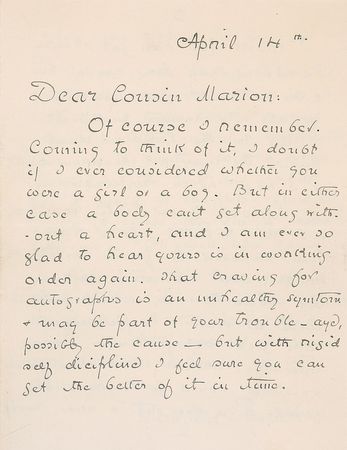 April 14th.
Dear Cousin Marion:
Of course I remember.
Coming to think of it, I doubt
if I ever considered whether you
were a girl or a boy. But in either
case a body cant get along with-
-out a heart, and I am ever so
glad to hear yours is in working
order again. That craving for
autographs is an unhealthy symtom
& may be part of your trouble - aye,
possibly the cause - but with rigid
self dicipline I feel sure you can
get the better of it in time.